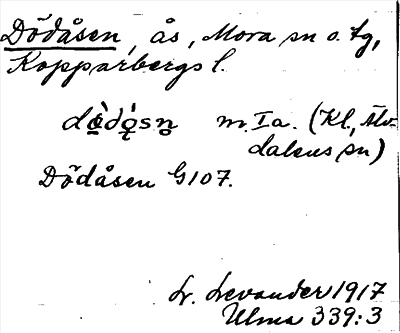 Dödåsen, ås, Mora sn o. tg,
Kopparbergs l.
dø̀dǫ́sn̥ m. Ia. (Kl., Älv-
dalens sn)
Dödåsen G107.
L. Levander 1917
Ulma 339:3